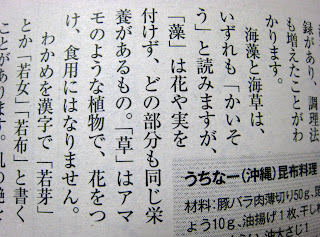 録があり、調理法
も増えたことがわ
かります。
海藻と海草は、
いずれも「かいそ
う」と読みますが、
「藻」は花や実を
付けず、どの部分も同じ栄
養があるもの。「草」はアマ
モのような植物で、花をつ
け、食用にはなりません。
わかめを漢字で「若芽」
とか「若女」「若布」と書く
ことがあります。
うちなー(沖縄)昆布料理
材料:豚バラ肉薄切り50g、昆
ょう10g、油揚げ1枚、干しし
油大さじ1